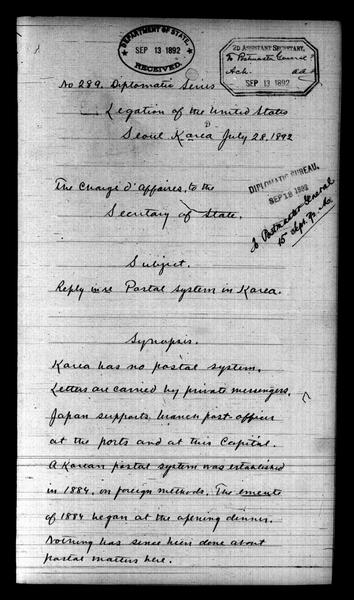 DEPARTMENT OF STATE,
SEP 13 1892
RECEIVED.
2D ASSISTANT SECRETARY,
To Postmaster General?
Ack.
SEP 13 1892
No 289. Diplomatic Series
Legation of the United States
Seoul Korea July 28, 1892
DIPLOMATIC BUREAU,
SEP 13 1892
To Postmaster General
15 Sept. 92.
The Chargé d'Affaires, to the
Secretary of State.
Subject.
Reply in re Postal system in Korea.
Synopsis.
Korea has no postal system.
Letters are carried by private messengers.
Japan supports branch post-offices
at the ports and at this Capital.
A Korean postal system was established
in 1884, on foreign methods. The emeute
of 1884 began at the opening dinner.
Nothing has since been done about
postal matters here.